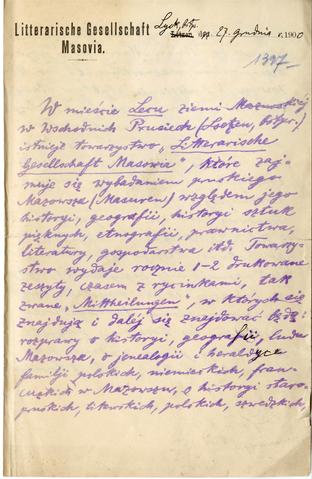 Litterarische Gesellschaft
Masovia.
Lyck, Ostpr. 27. Grudnia 1900
1397
W mieście Lecu ziemi Mazurskiej
w Wschodnich Prusiech (Loetzen, Ostpr.)
istnieje towarzystwo „Litterarische
Gesellschaft Masovia", które zaj-
muje się wybadaniem pruskiego
Mazowsza (Masuren) względem jego
historyi, geografii, historyi sztuk
pięknych, etnografii, prawnictwa,
literatury, gospodarstwa itd. Towarzy-
stwo wydaje rocznie 1-2 drukowane
zeszyty, czasem z rycinkami, tak
zwane „Mittheilungen", w których się
znajdują i dalej się znajdować będą:
rozprawy o historyi, geografii, ludu
Mazowsza, o jenealogii i heraldyce
familji polskich, niemieckich, fran-
cuzkich w Mazowszu, o historyi staro-
pruskich, litewskich, polskich, szwedzkich,